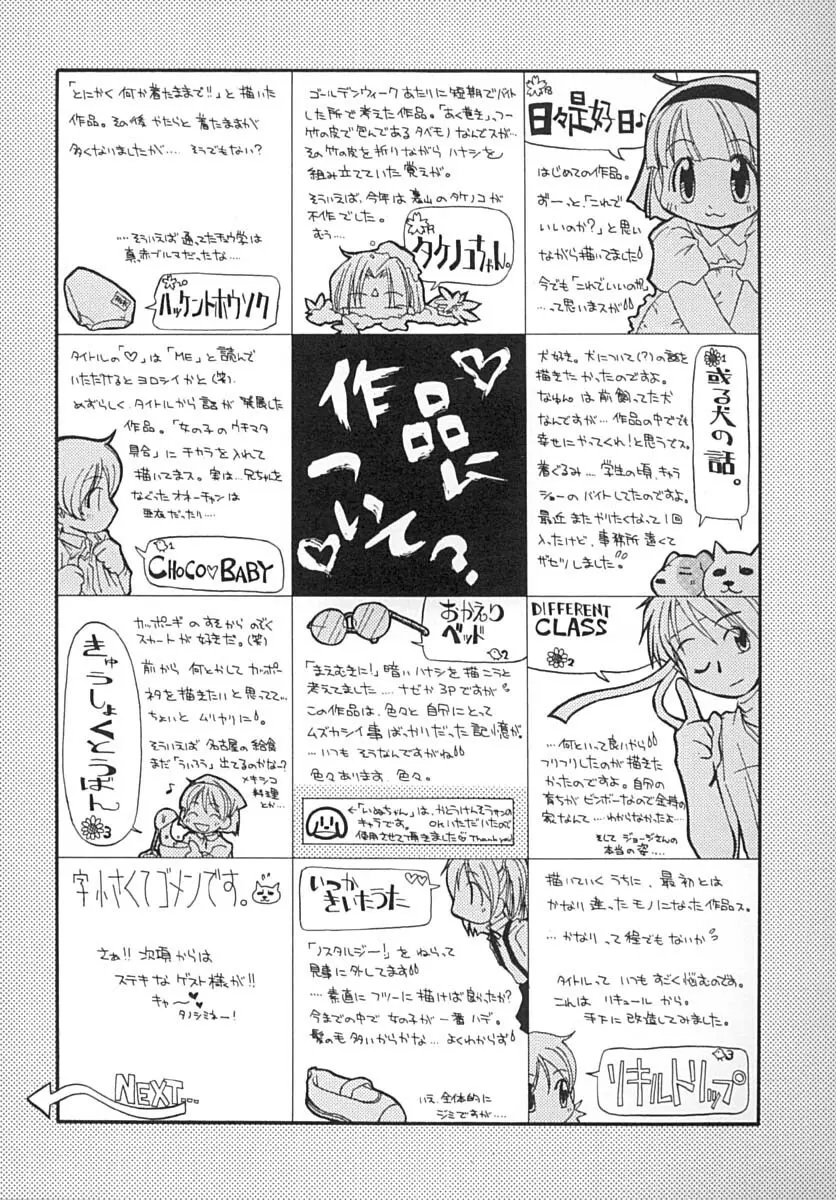 日々是好日♪
はじめての作品。
ずーっと「これで
いいのか?」と思い
ながら描いてました
今でも「これでいいのか?」
…って思いまスが
ゴールデンウィークあたりに短期でバイト
した所で考えた作品。「あく巻き」、つー
竹の皮で包んであるタベモノなんでスが…
その竹の皮を折りながらハナシを
組み立てていた覚えが。
そういえば、今年は裏山のタケノコが
不作でした。
むぅ…
タケノコちゃん。
「とにかく何か着たままで!!」と描いた
作品。その後やたらと着たままが
多くなりましたが…. そうでもない?
….そういえば通ってた
真っ赤ブルマだったな….
ハッケントホウソク
作品について?
或る犬の話。
犬好き。犬について(?)の話を
描きたかったのですよ。
なゅんは前飼ってた犬
なんですが…作品の中ででも
幸せにやってくれ!と思うでス。
着ぐるみ….学生の頃、キャラ
ショーのバイトしてたのですよ。
最近またやりたくなって1回
入ったけど、事務所遠くて
ザセツしました。
タイトルの「♡」は「ME」と読んで
いただけるとヨロシイかと(笑).
めずらしく、タイトルから話が発展した
作品。「女の子のウチマタ
具合」にチカラを入れて
描いてまス。実は…兄ちゃん
なぐったオネーチャンは
1
CHOCO♡BABY
DIFFERENT
CLASS
2
….何といって良いから
フリフリしたのが描きた
かったのですよ。自分の
育ちがビンボーなので金持の
家なんて….わからなかったよ…
そして ジョージさんの
本当の姿….
おかえり
ベッド
2
「まえむきに!」暗いハナシを描こうと
考えてました….ナゼか3Pですが
この作品は、色々と自分にとって
ムズカシイ事ばっかりだった記憶が。
…いつもそうなんですがね
色々あります、色々。
←「いぬちゃん」は、かとうけんぞうサンの
キャラです。OKいただいたので
使用させて頂きました Thank you!
きゅうしょくとうばん
3
カッポーギのすそからのぞく
スカートが好きだ。(笑)
前から何とかしてカッポー
ネタを描きたいと思ってて…
ちょいとムリヤリに。
そういえば名古屋の給食
まだ「ういろう」出てるのかな~?
メキシコ
料理
とか…
リキルトリップ
3
描いていくうちに、最初とは
かなり違ったモノになった作品ス。
…かなりって程でもないか
タイトルっていつもすごく悩むのです。
これはリキュールから。
手下に改造してみました。
いつか
きいたうた
「ノスタルジー!」をねらって
見事に外してます
….素直にフツーに描けば良かったか?
今までの中で女の子が一番ハデ。
髪の毛多いからかな…よくわからず
いえ、全体的に
ジミですが….
字小さくてゴメンです。
さぁ!! 次項からは
ステキなゲスト様が!!
キャ〜♥
タノシミネー!
NEXT...